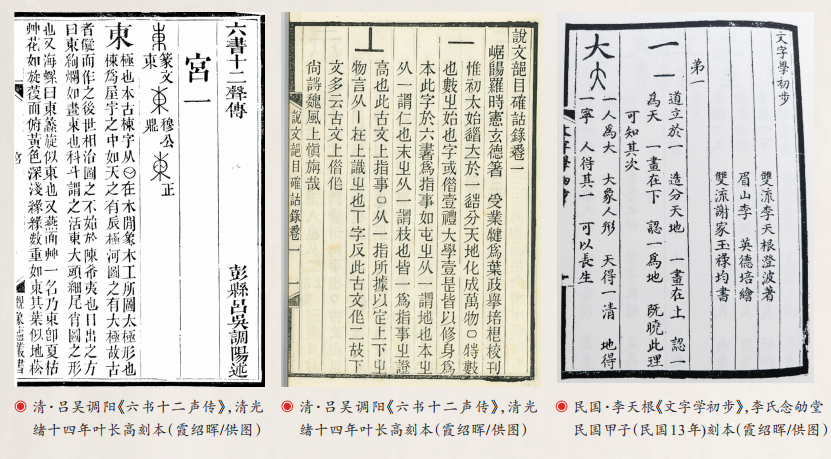 六書十二聲傳 彭縣呂吳調陽述
宮一
東 篆文 穆公鼎 正
東 極也本古棟字从日在木閒象木工所圖太極形也
棟爲屋宇之中如天之有辰極河圖之有大極故古
者從而作之後世相沿圖之不始於陳希夷也日出之方
曰東絢爛如畫東也科斗謂之活東大頭細尾肖圖之形
也又海螺曰東蠡旋似東也又燕面艸一名乃東卽夏枯
艸花如旋葍而俯黃色深淺綠綠數重如東其葉似地菘
說文䛐目確詁錄卷一
羅時憲玄德箸 受業犍爲葉政擧培校刊
一 惟初太始道大於一造分天地化成萬物○特數
也數㞢始也字或借壹禮大學壹是皆以修身爲
本此字於六書爲指事如屯㞢从一謂地也本㞢
从一謂仁也末㞢从一謂枝也皆一爲指事㞢證
丄 高也此古文上指事○从一指所據以定上下㞢
物言从丨在上識㞢也丅字反此古文作二故下
文多云古文上作
尚詩魏風上愼旃哉
說文䛐目確詁錄卷一
文字學初步
雙流李天根澄波著
眉山李英德培繪
雙流謝家玉祿均書
第一
一 道立於一 造分天地 一畫在上 認一
爲天 一畫在下 認一爲地 旣曉此理
可知其次
大 一人爲大 大象人形 天得一清 地得一
寧 人得其一 可以長生
文字學初步
清·吕吴调阳《六书十二声传》,清光
绪十四年叶长高刻本(霞绍晖/供图)
清·吕吴调阳《六书十二声传》,清光
绪十四年叶长高刻本(霞绍晖/供图)
民国·李天根《文字学初步》,李氏念劬堂
民国甲子(民国13年)刻本(霞绍晖/供图)